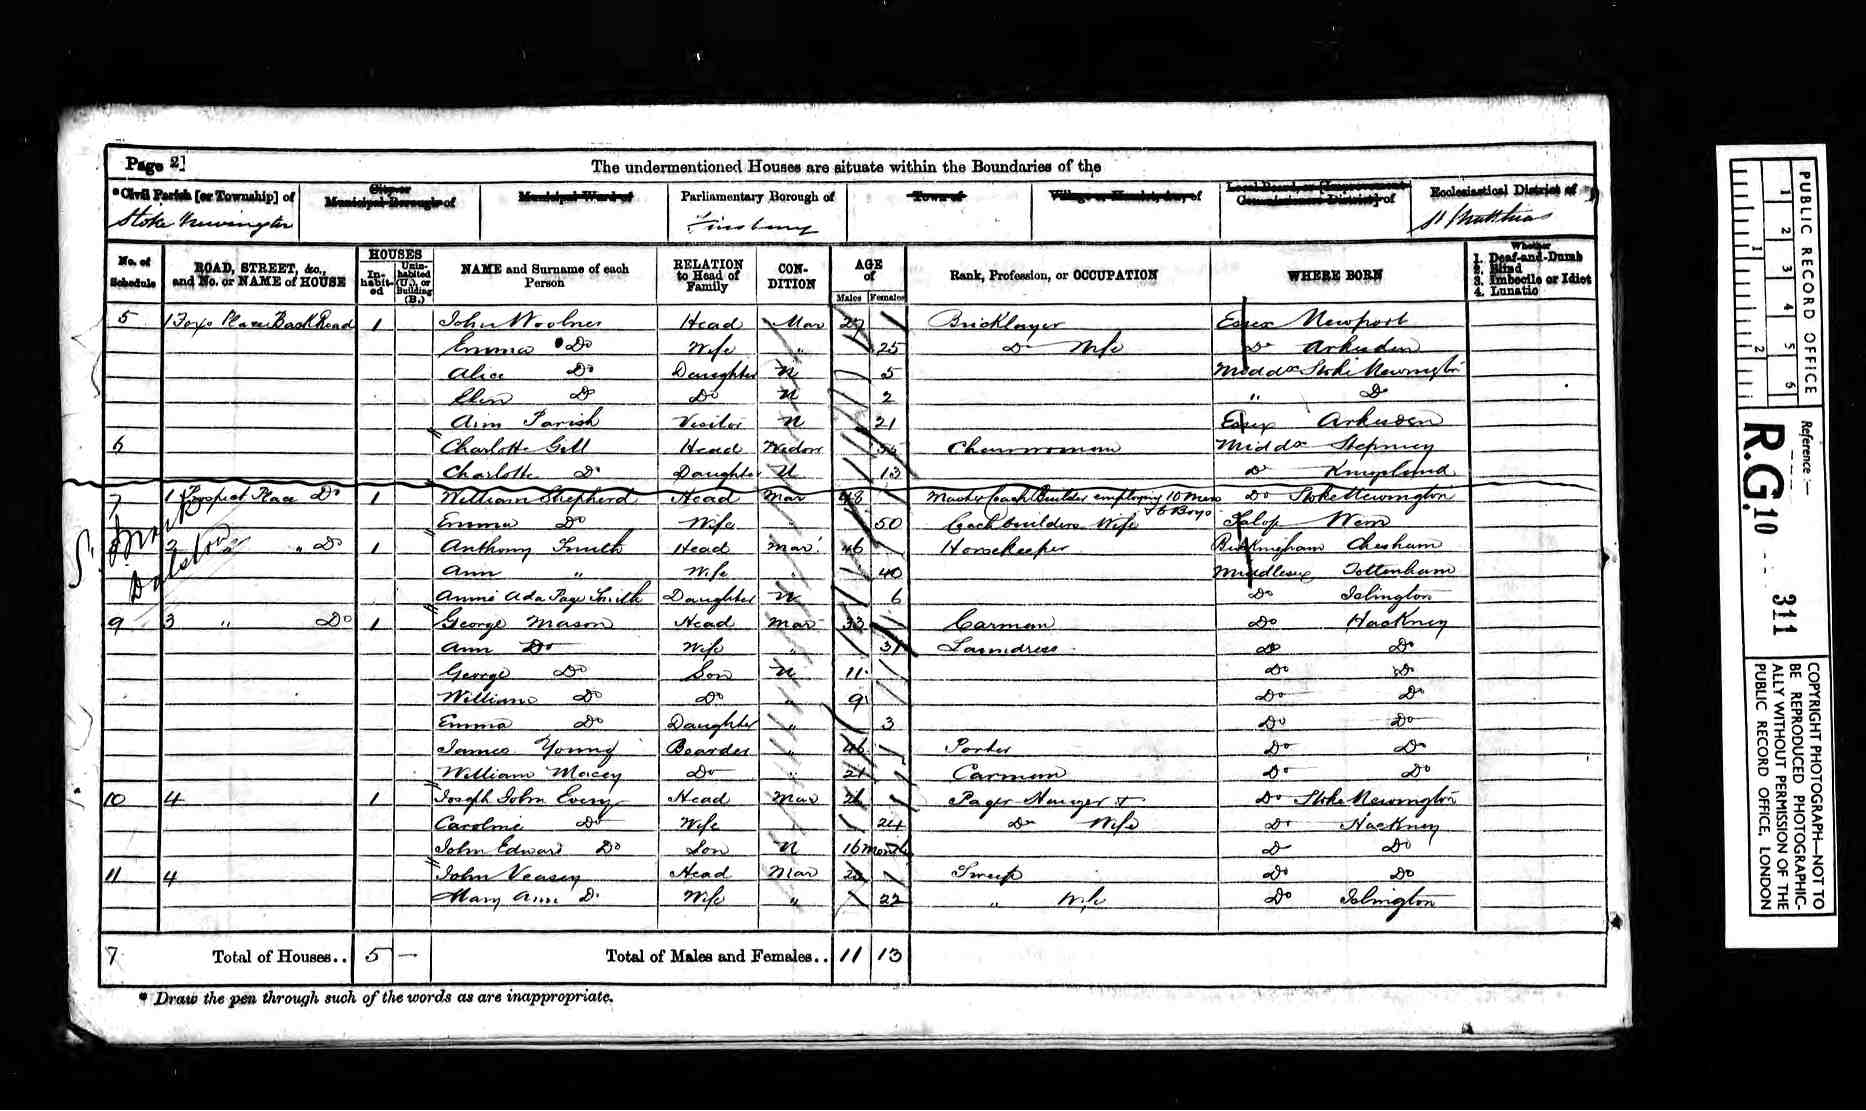 Page 21
The undermentioned Houses are situate within the Boundaries of the
*Civil Parish [or Township] of
City or Municipal Borough of
Municipal Ward of
Parliamentary Borough of
Town of
Village or Hamlet, &c., of
Local Board, or [Improvement Commissioners District] of
Ecclesiastical District of
Stoke Newington Finsbury St Matthias
No. of Schedule
ROAD, STREET, &c., and No. or NAME of HOUSE
HOUSES
In-habit-ed
Unin-habited (U.), or Building (B.)
NAME and Surname of each Person
RELATION to Head of Family
CON-DITION
AGE of
Males Females
Rank, Profession, or OCCUPATION
WHERE BORN
Whether
1. Deaf-and-Dumb
2. Blind
3. Imbecile or Idiot
4. Lunatic
5 1 Foxs Place Back Road 1 John Woolner Head Mar Bricklayer Essex Newport
Emma Do Wife " 25 Do Wife Do Arkesden
Alice Do Daughter U 5 Middx Stoke Newington
Do Do U 2 " Do
Ann Parish Visitor U 21 Essex Arkesden
6 Charlotte Gill Head Widow Charwoman Middx Stepney
Charlotte Do Daughter U 13 Do Kingsland
7 1 Prospect Place Do 1 William Shepherd Head Mar 48 Master Coach Builder employing 10 Men & 6 Boys Do Stoke Newington
Emma Do Wife 50 Coachbuilders Wife Salop Wem
8 2 " " Do 1 Anthony Smith Head Mar 46 Horsekeeper Buckingham Chesham
Ann " Wife 40 Middlesex Tottenham
Annie Ada Page Smith Daughter U 6 Do Islington
9 3 " Do 1 George Mason Head Mar 33 Carman Do Hackney
Ann Do Wife " 31 Laundress Do Do
George Do Son U 11 Do Do
William Do Do " 9 Do Do
Emma Do Daughter " 3 Do Do
James Young Boarder " 46 Porter Do Do
William Macey Do " 21 Carman Do Do
10 4 1 Joseph John Every Head Mar 26 Paper Hanger Do Stoke Newington
Caroline Do Wife " 24 Do Wife Do Hackney
John Edward Do Son U 16 months Do Do
11 4 John Veasey Head Mar Sweep Do Do
Mary Ann Do Wife " 22 " Wife Do Islington
7 Total of Houses.. 5 — Total of Males and Females.. 11 13
* Draw the pen through such of the words as are inappropriate.
PUBLIC RECORD OFFICE
1 2 3 4 5 6
1 2
Reference:—
R.G. 10 311
COPYRIGHT PHOTOGRAPH—NOT TO BE REPRODUCED PHOTOGRAPHIC-ALLY WITHOUT PERMISSION OF THE PUBLIC RECORD OFFICE, LONDON